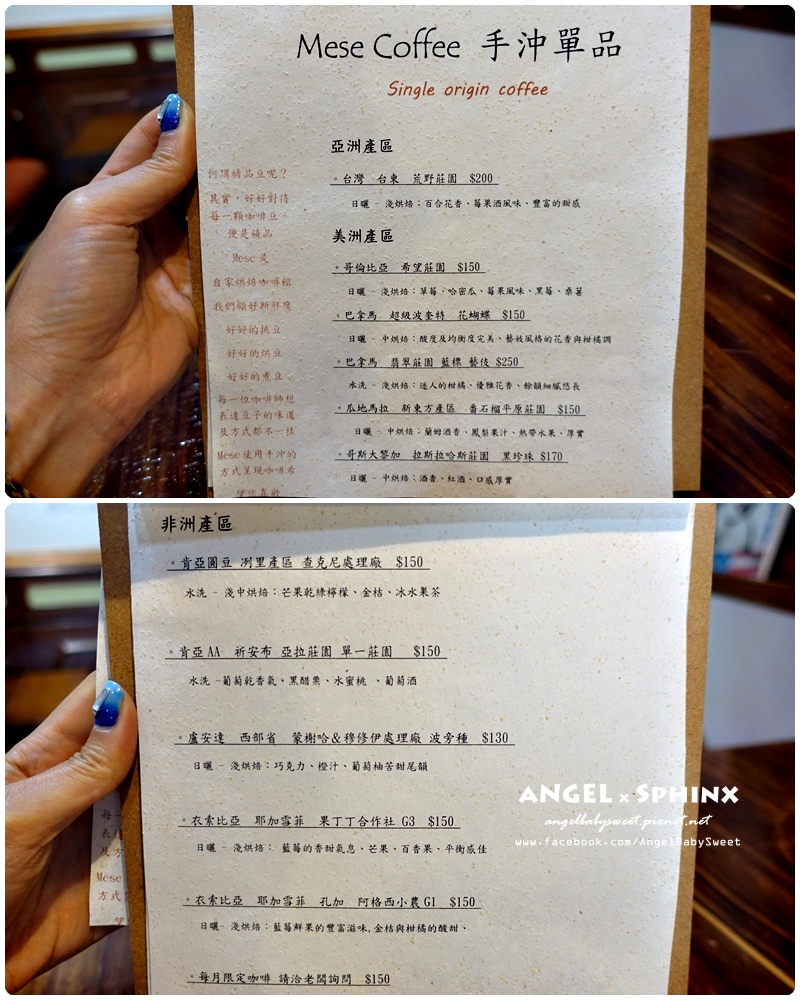 Mese Coffee 手沖單品
Single origin coffee
何謂精品豆呢？
其實，好好對待
每一顆咖啡豆，
便是精品
Mese 是
自家烘焙咖啡館
我們顧好新鮮度
好好的挑豆
好好的烘豆
好好的煮豆
每一位咖啡師想
表達豆子的味道
及方式都不一樣
Mese使用手沖的
方式呈現咖啡希
望你喜歡
亞洲產區
。台灣 台東 荒野莊園 $200
日曬 - 淺烘焙：百合花香、莓果酒風味、豐富的甜感
美洲產區
。哥倫比亞 希望莊園 $150
日曬 - 淺烘焙：草莓、哈密瓜、莓果風味、黑莓、桑葚
。巴拿馬 超級波奎特 花蝴蝶 $150
日曬 - 中烘焙：酸度及均衡度完美、藝妓風格的花香與柑橘調
。巴拿馬 翡翠莊園 藍標 藝伎 $250
水洗 - 淺烘焙：迷人的柑橘、優雅花香、餘韻細膩悠長
。瓜地馬拉 新東方產區 番石榴平原莊園 $150
日曬 - 中烘焙：蘭姆酒香、鳳梨果汁、熱帶水果、厚實
。哥斯大黎加 拉斯拉哈斯莊園 黑珍珠 $170
日曬 - 中烘焙：酒香、紅酒、口感厚實
非洲產區
。肯亞圓豆 冽里產區 查克尼處理廠 $150
水洗 - 淺中烘焙：芒果乾綠檸檬、金桔、冰水果茶
。肯亞 AA 祈安布 亞拉莊園 單一莊園 $150
水洗 -葡萄乾香氣、黑醋栗、水蜜桃 、葡萄酒
。盧安達 西部省 蒙榭哈＆穆修伊處理廠 波旁種 $130
日曬 - 淺烘焙：巧克力、橙汁、葡萄柚苦甜尾韻
。衣索比亞 耶加雪菲 果丁丁合作社 G3 $150
日曬 - 淺烘焙： 藍莓的香甜氣息、芒果、百香果、平衡感佳
。衣索比亞 耶加雪菲 孔加 阿格西小農 G1 $150
日曬 - 淺烘焙：藍莓鮮果的豐富滋味,金桔與柑橘的酸甜、
。每月限定咖啡 請洽老闆詢問 $150
每一
表達
及方
Mese
方式
望
ANGEL x SPHINX
angelbabysweet.pixnet.net
www.facebook.com/AngelBabySweet